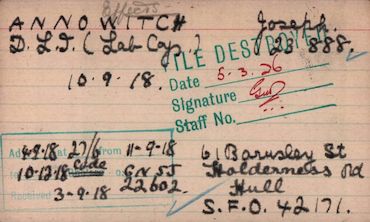 Effects
ANNOWITCH Joseph.
D.L.I. (Lab Coy.) 123888.
FILE DESTROYED
10.9.18.
Date 5.3.26
Signature
Staff No.
4-9-18 27/6 11-9-18
10-12-18 Code
22602.
Received 3-9-18
61 Barnsley St
Holderness Rd
Hull
S.F.O. 42171.